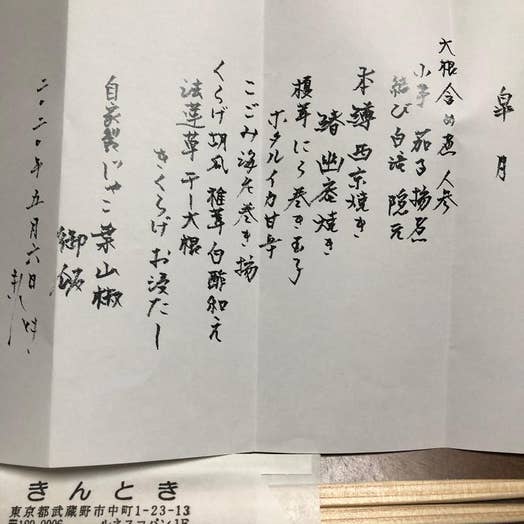 皐月
大根含め煮 人参
小芋 茄子揚煮
結び白滝 隠元
本鰆西京焼き
鰆幽庵焼き
榎茸にら巻き玉子
ホタルイカ甘辛
こごみ 海老巻き揚
くらげ 胡瓜 椎茸 白酢和え
法蓮草 干大根
きくらげ お浸たし
自家製じゃこ 葉山椒
御飯
二〇二〇年五月六日
きんとき
東京都武蔵野市中町1-23-13
〒180-0006 ルネスコバン1F